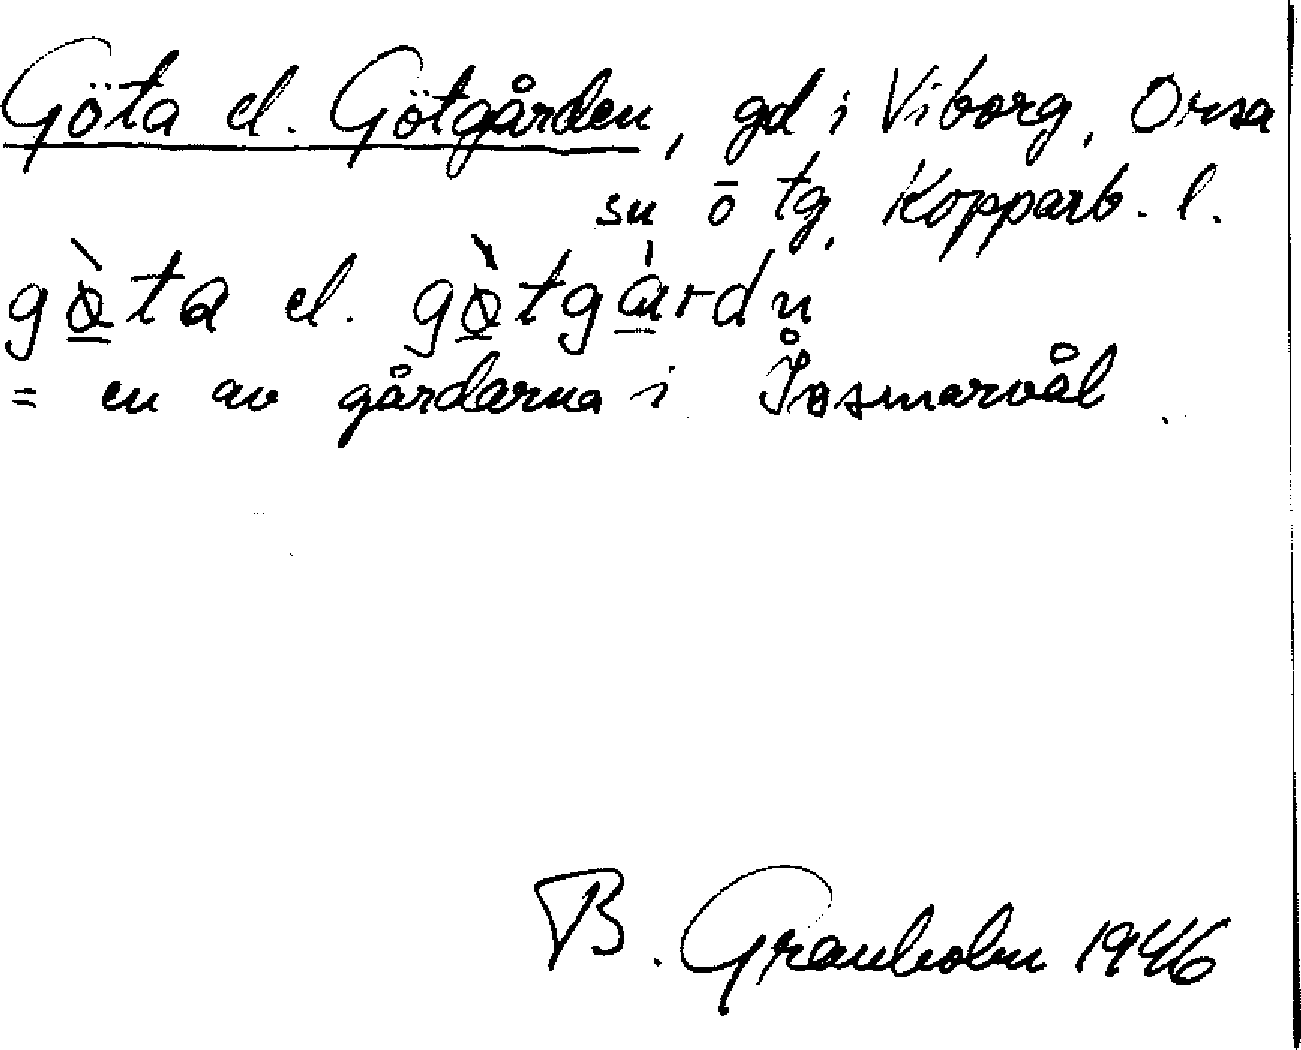 Göta el. Götgården, gd i Viborg, Orsa
sn ö tg, Kopparb. l.
gø̀ta el. gø̀tgárdn
= en av gårdarna i Åosmarvål.
B. Granholm 1946